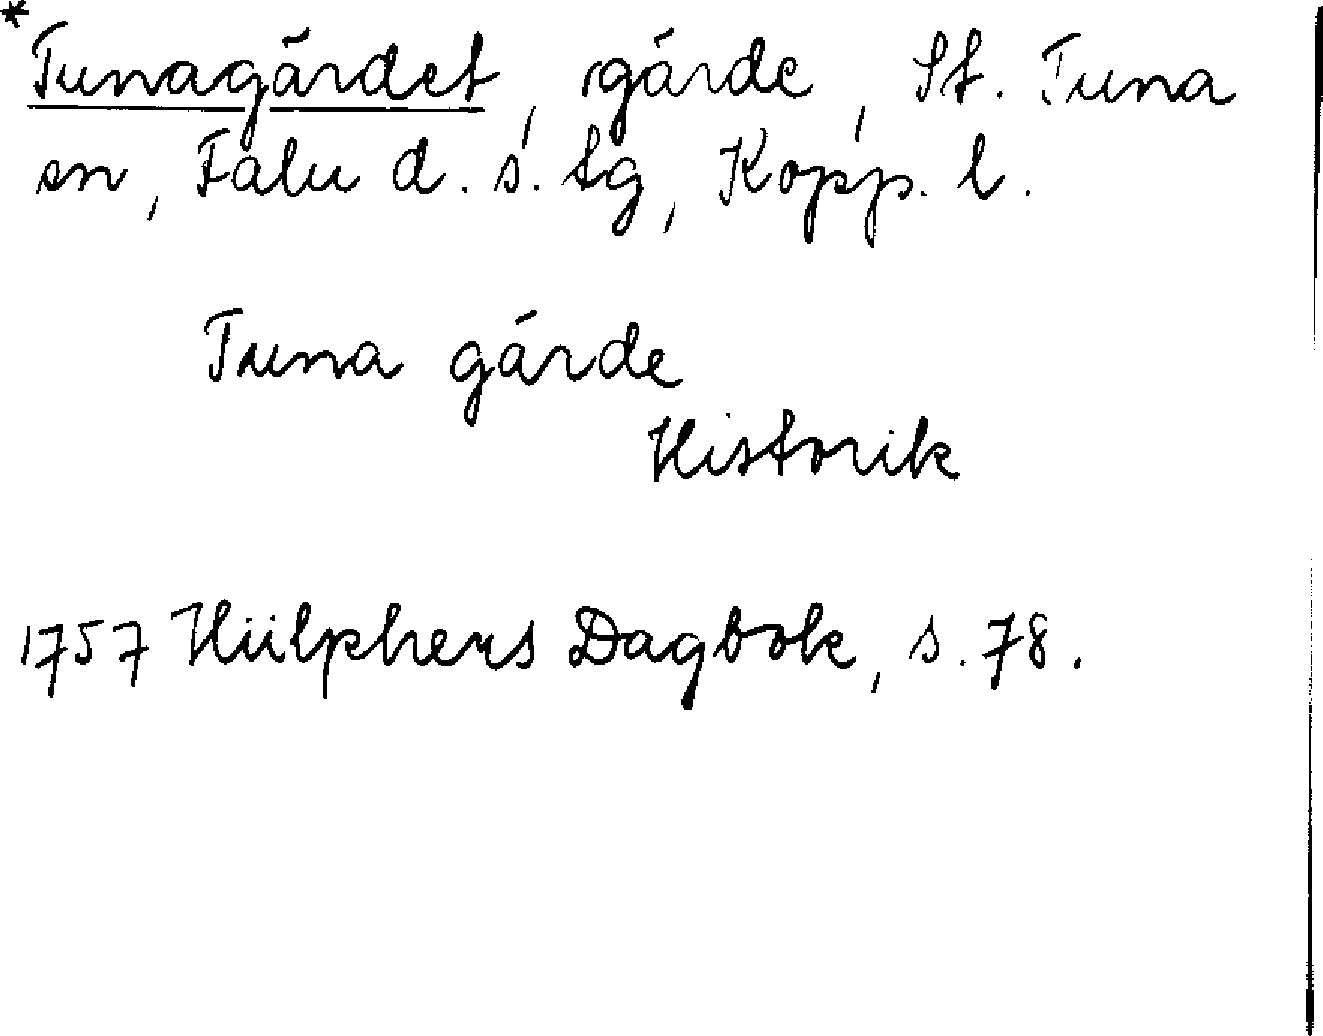 *Tunagärdet, gärde, St. Tuna
sn, Falu d. s. tg, Kopp. l.
Tuna gärde
Historik
1757 Hülphers Dagbok, s. 78.